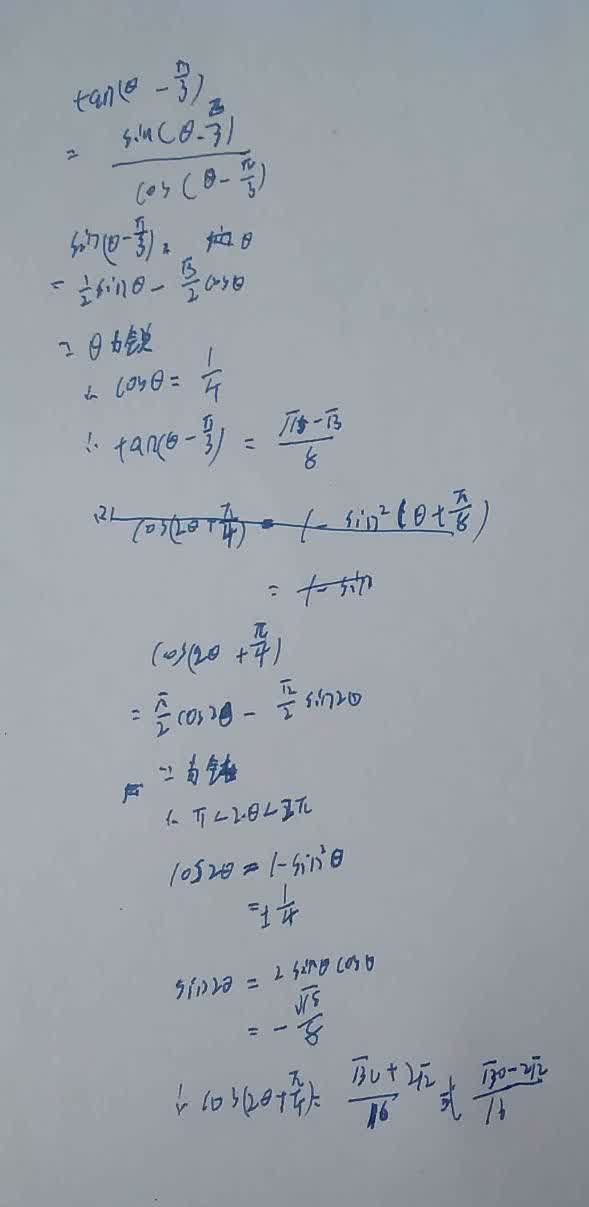 tan(θ - π/3)
= sin(θ - π/3) / cos(θ - π/3)
sin(θ - π/3) θ
= 1/2 sinθ - √3/2 cosθ
∵ θ为锐
∴ cosθ = 1/4
∴ tan(θ - π/3) = (√15 - √3)/8
(2) cos(2θ + π/4) = 1 - sin²(θ + π/8)
= 1 - sin
cos(2θ + π/4)
= √2/2 cos2θ - √2/2 sin2θ
∵ 为
∴ π < 2θ < 2π
cos2θ = 1 - sin²θ
= ± 1/4
sin2θ = 2 sinθ cosθ
= - √15/8
∴ cos(2θ + π/4) = (√30 + 2√2)/16 或 (√30 - 2√2)/16